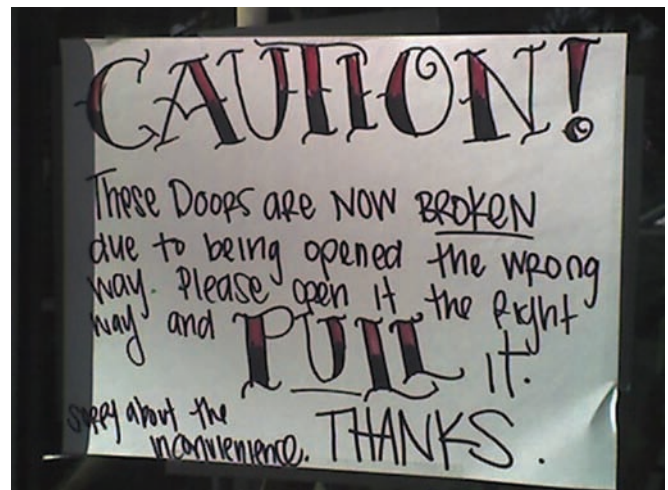 CAUTION!
These Doors are now BROKEN
due to being opened the wrong
way. Please open it the Right
way and PULL it.
sorry about the
inconvenience. THANKS.